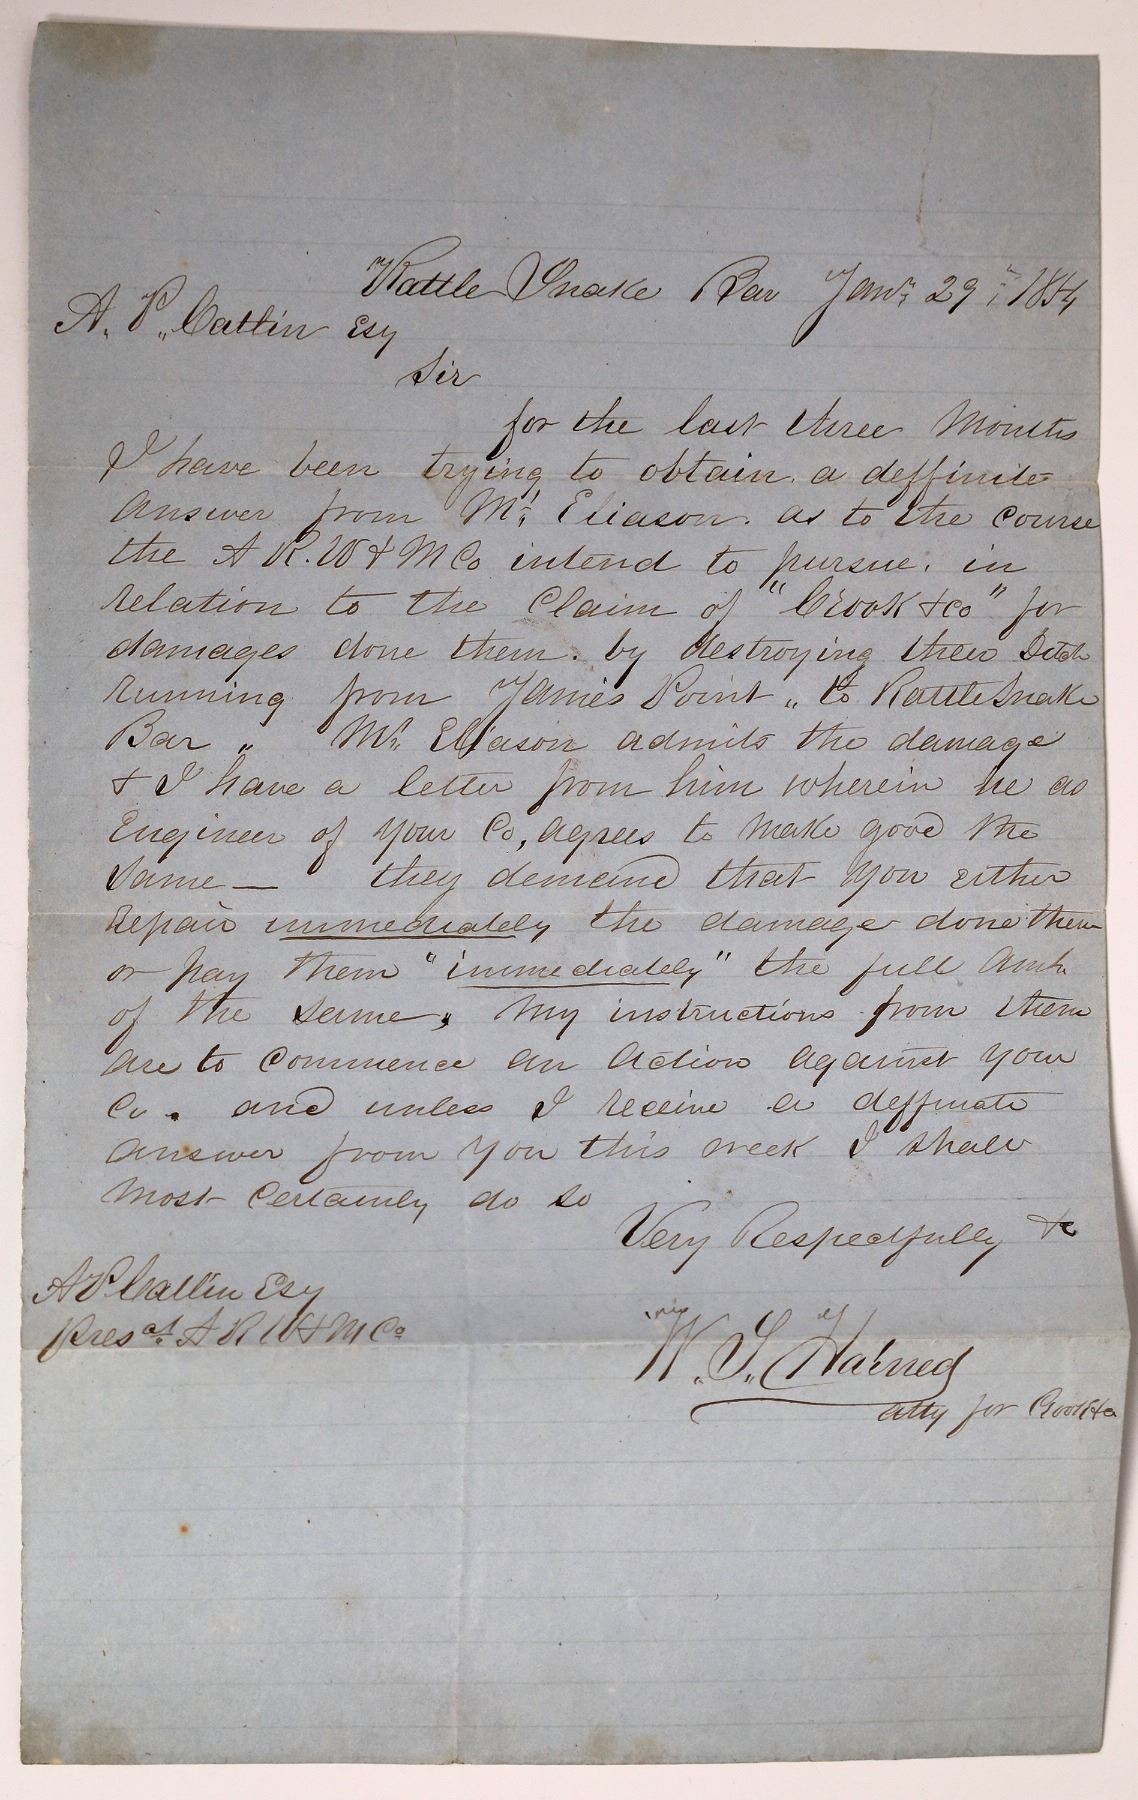 Rattle Snake Bar Jany 29th 1854
A. P. Catlin Esq
Sir
for the last three Months
I have been trying to obtain a deffinite
answer from Mr. Eliason. as to the course
the A R. W & M Co intend to pursue. in
relation to the Claim of "Crook & Co" for
damages done them. by destroying their Ditch
running from James Point „ to RattleSnake
Bar „ Mr. Eliason admits the damage
& I have a letter from him wherein he as
Engineer of your Co, agrees to make good the
same — they demand that you either
repair immediately the damage done them
or pay them "immediately" the full Amt.
of the same, My instructions from them
are to commence an action against your
Co. and unless I receive a deffinate
answer from you this week I shall
most certainly do so
Very Respectfully &c
A P Catlin Esq
Presdt. A R W & M Co
W. S. Harned
atty for Crook & Co